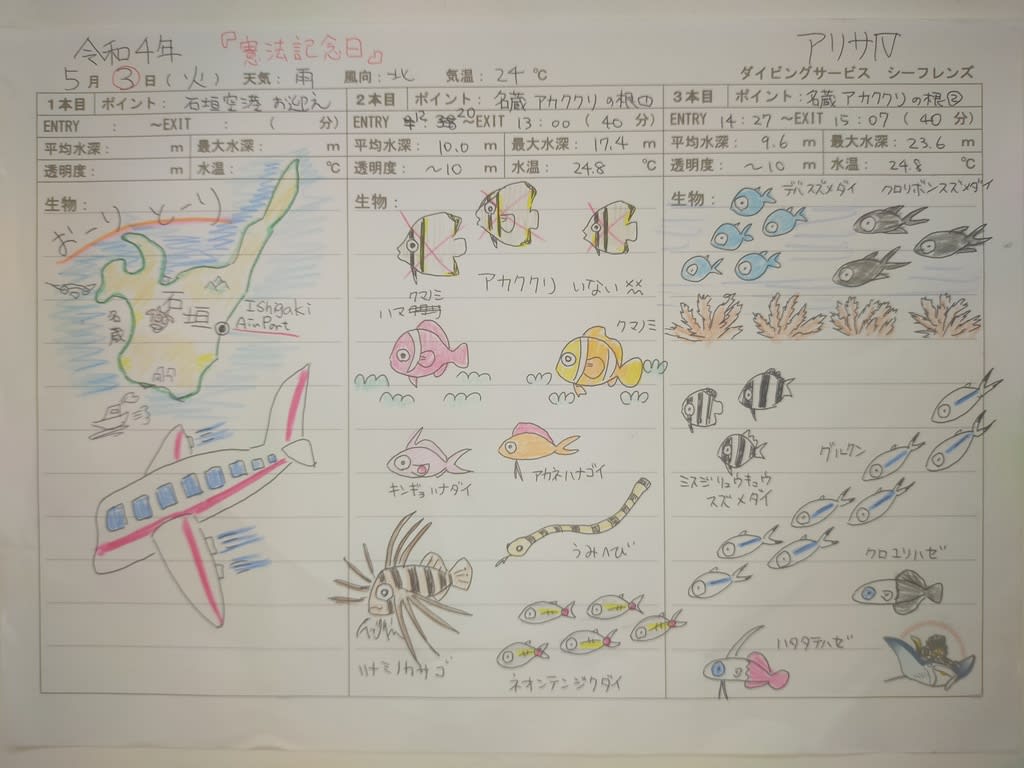 令和4年 『憲法記念日』 アリサⅣ
5月3日(火) 天気:雨 風向:北 気温:24℃ ダイビングサービス シーフレンズ
1本目 ポイント: 石垣空港 お迎え
ENTRY : ~EXIT : ( 分)
平均水深: m 最大水深: m
透明度: m 水温: ℃
生物:
おーりとーり
石垣
名蔵
Ishigaki
AirPort
2本目 ポイント: 名蔵 アカククリの根①
ENTRY 12:20~EXIT 13:00 (40分)
平均水深: 10.0 m 最大水深: 17.4 m
透明度: ~10 m 水温: 24.8 ℃
生物:
アカククリ いない
ハマクマノミ
クマノミ
キンギョハナダイ
アカネハナゴイ
うみへび
ハナミノカサゴ
ネオンテンジクダイ
3本目 ポイント: 名蔵 アカククリの根②
ENTRY 14:27~EXIT 15:07 (40分)
平均水深: 9.6 m 最大水深: 23.6 m
透明度: ~10 m 水温: 24.8 ℃
生物:
デバスズメダイ クロリボンスズメダイ
ミスジリュウキュウ
スズメダイ
グルクン
クロユリハゼ
ハタタテハゼ